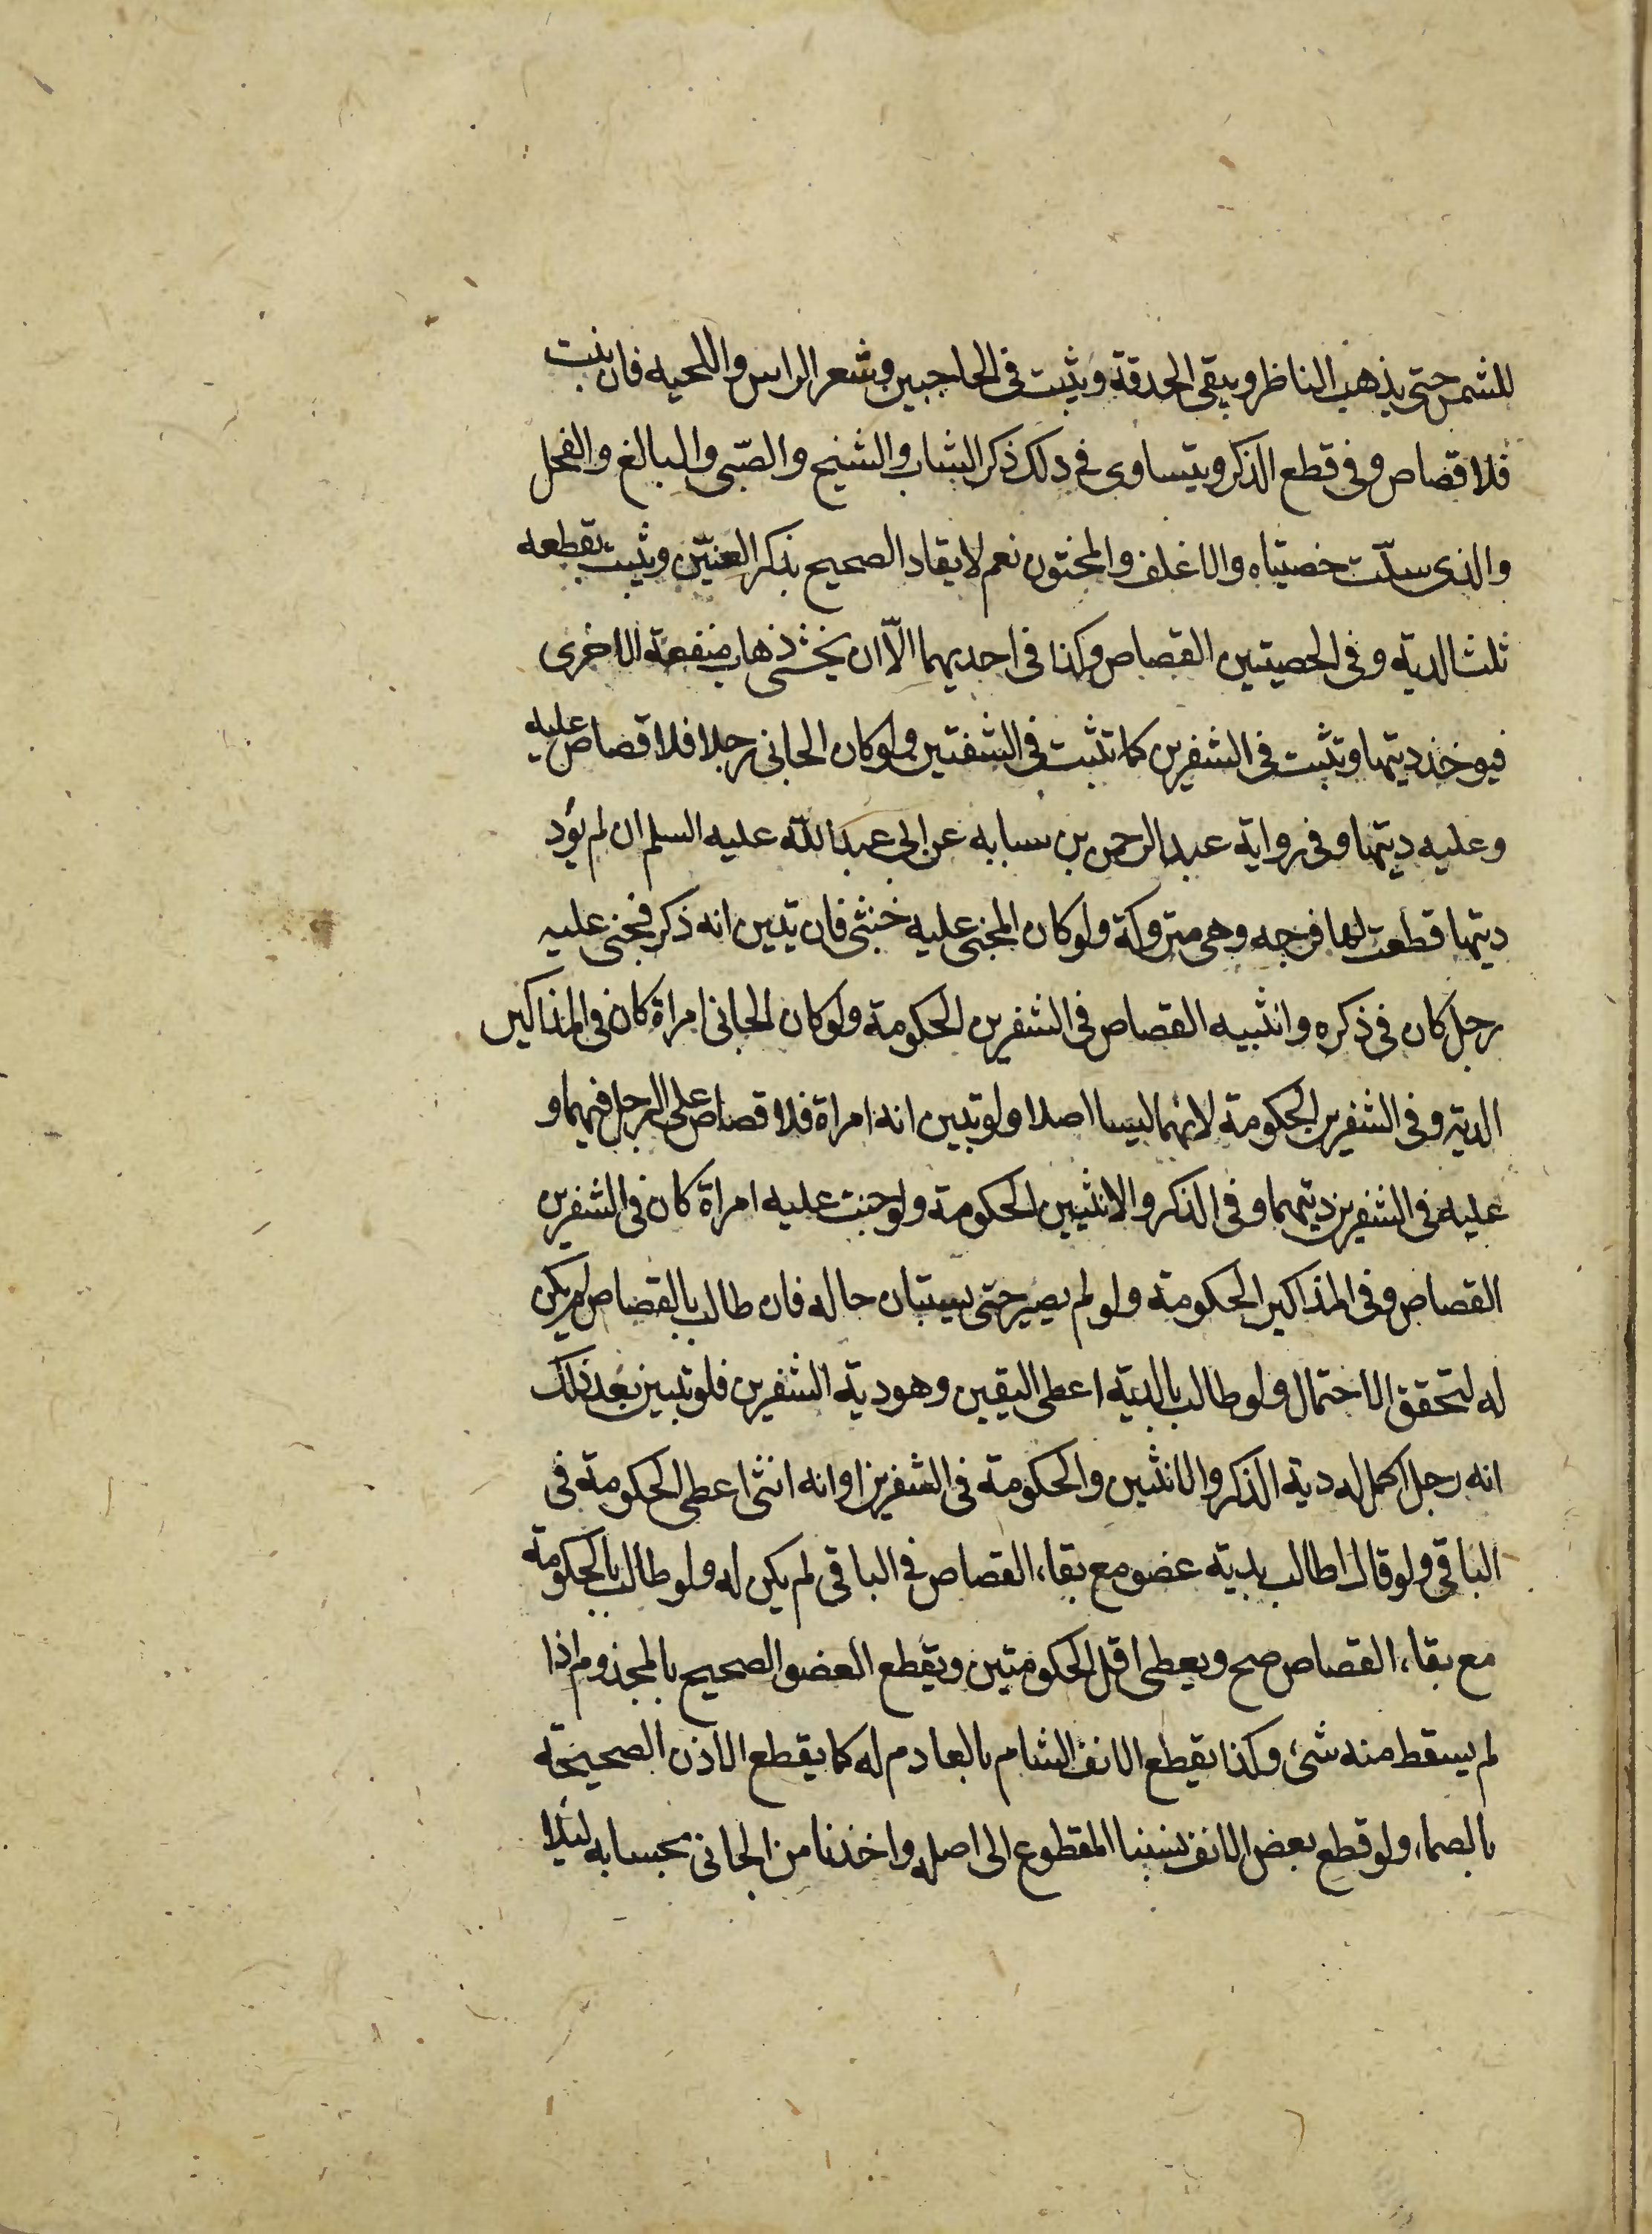 للشمس حتى يذهب الناظر ويبقى الحدقة ويثبت فى الحاجبين وشعر الراس واللحيه فان نبت
فلا قصاص وفى قطع الذكر ويتساوى فى ذلك ذكر الشاب والشيخ والصّبى والبالغ والفحل
والذى سلّت خصيتاه والاغلف والمختون نعم لا يقاد الصحيح بذكر العنيّن ويثبت بقطعه
ثلث الدية وفى الخصيتين القصاص وكذا فى احديهما الّا ان يخشى ذهاب منفعة الاخرى
فيوخذ ديتها وتثبت فى الشفرين كما تثبت فى الشفتين ولو كان الجانى رجلا فلا قصاص عليه
وعليه ديتها وفى رواية عبد الرحمن بن سيابه عن ابى عبد الله عليه السلم ان لم يؤد
ديتها قطعت لها فرجه وهى متروكة ولو كان المجنى عليه خنثى فان تبين انه ذكر فجنى عليه
رجل كان فى ذكره وانثييه القصاص فى الشفرين الحكومة ولو كان الجانى امراة كان فى المذاكير
الدية وفى الشفرين الحكومة لانهما ليسا اصلا ولو تبين انه امراة فلا قصاص على الرجل فيهما و
عليه فى الشفرين ديتهما وفى الذكر والانثيين الحكومة ولو جنت عليه امراة كان فى الشفرين
القصاص وفى المذاكير الحكومة ولو لم يصبر حتى يستبان حاله فان طالب بالقصاص لم يكن
له لتحقق الاحتمال ولو طالب بالدية اعطى اليقين وهو دية الشفرين فلو تبين بعد ذلك
انه رجل اكمل له دية الذكر والانثيين والحكومة فى الشفرين او انه انثى اعطى الحكومة فى
الباقى ولو قال اطالب بدية عضو مع بقاء القصاص فى الباقى لم يكن له ولو طالب بالحكومة
مع بقاء القصاص صح ويعطى اقل الحكومتين ويقطع العضو الصحيح بالمجذوم اذا
لم يسقط منه شىء وكذا يقطع الانف الشام بالعادم له كما يقطع الاذن الصحيحة
بالصماء ولو قطع بعض الانف نسبنا المقطوع الى اصله واخذنا من الجانى بحسابه لئلا